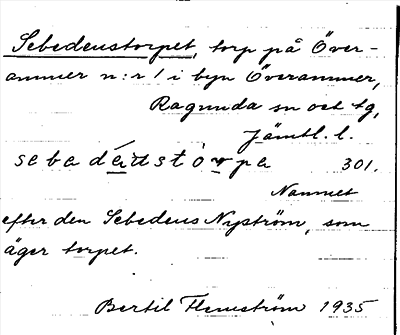 Sebedeustorpet, torp på Över-
ammer n:r 1 i byn Överammer,
Ragunda sn och tg,
Jämtl. l.
sebadéustòrpa 301.
Namnet
efter den Sebedeus Nyström, som
äger torpet.
Bertil Flemström 1935